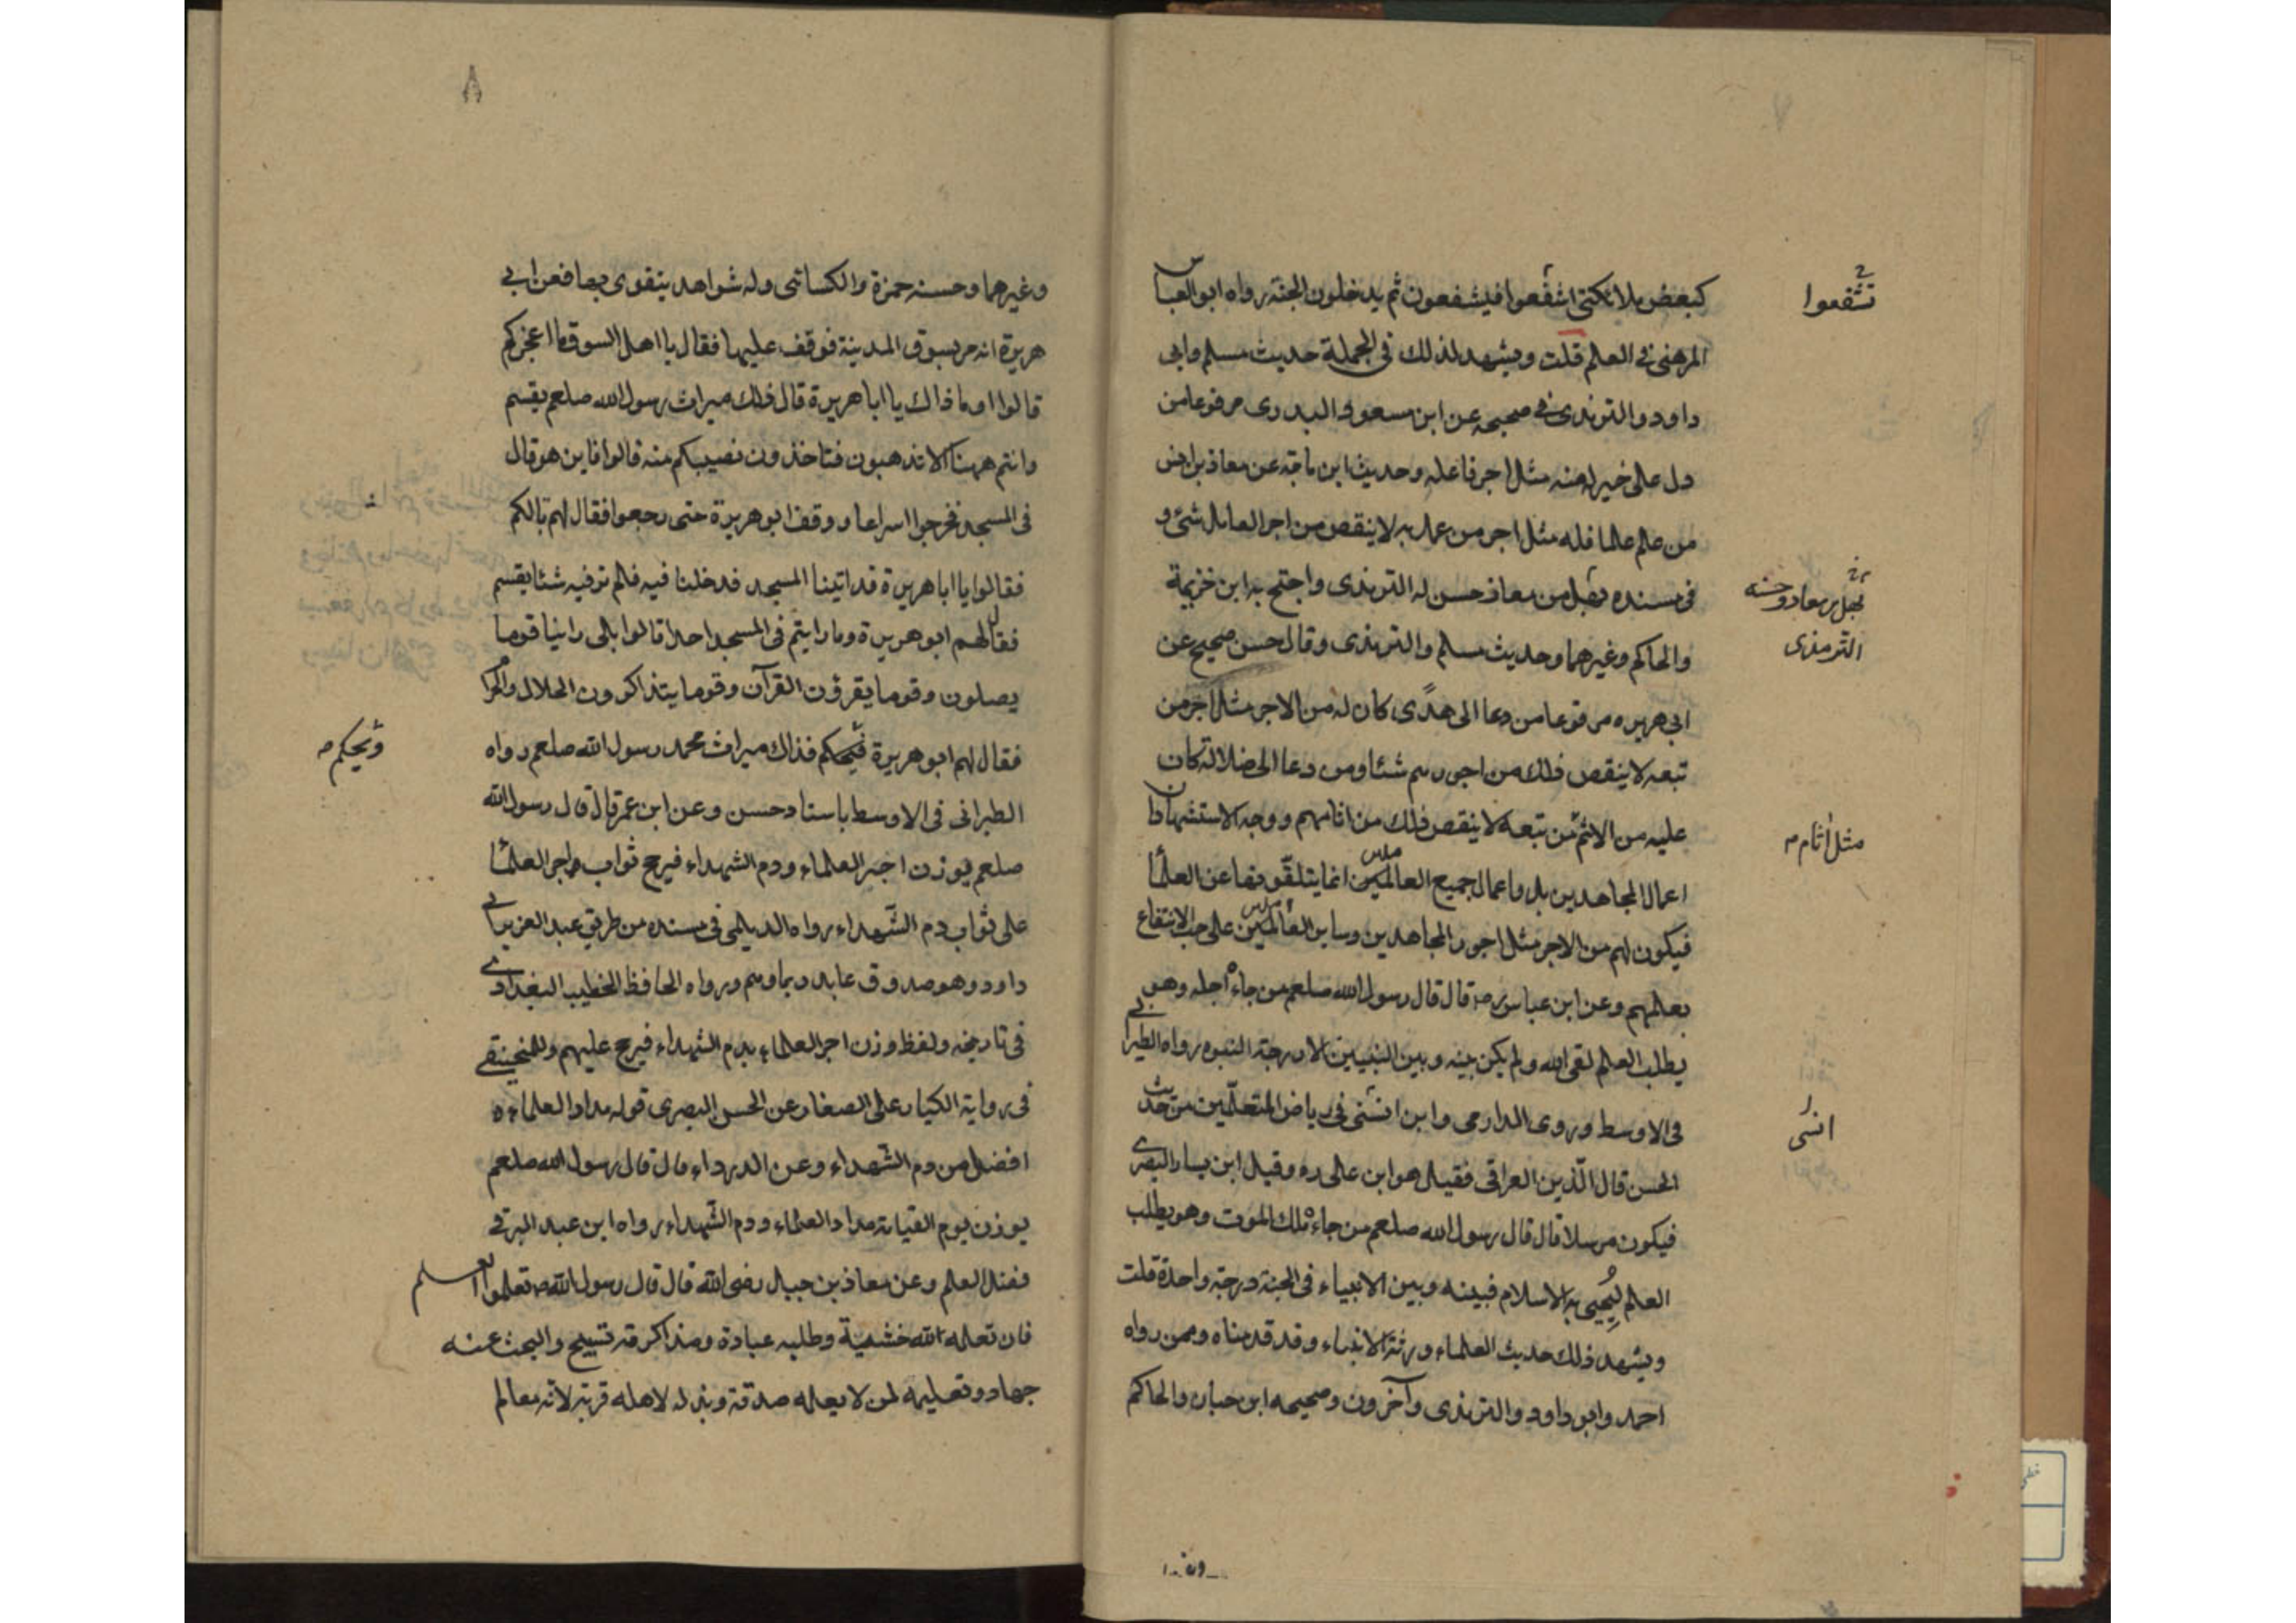 ٧
كبعض ملائكتى اشفعوا فيشفعون ثم يدخلون الجنة رواه ابو العباس
تشفعوا
المرهنى فى العلم قلت ويشهد لذلك فى الجملة حديث مسلم وابى
داود والترمذى فى صحيحه عن ابن مسعود البدرى مرفوعا من
دل على خير له منه مثل اجر فاعله وحديث ابن ماجه عن معاذ بن انس
من علم علما فله مثل اجر من عمل به لا ينقص من اجر العامل شئ و
فى مسنده سهل بن معاذ حسن له الترمذى واحتج به ابن خزيمة
سهل بن معاذ وحسنه
والحاكم وغيرهما وحديث مسلم والترمذى وقال حسن صحيح عن
الترمذى
ابى هريره مرفوعا من دعا الى هدًى كان له من الاجر مثل اجر من
تبعه لا ينقص ذلك من اجورهم شئا ومن دعا الى ضلالة كان
عليه من الاثم من تبعه لا ينقص ذلك من اثامهم ووجه الاستشهاد ان
مثل اثام
اعمال المجاهدين بل واعمال جميع العالمين انما يتلقّونها عن العلماء
فيكون لهم من الاجر مثل اجور المجاهدين وساير العالمين على حب الانتفاع
بعلمهم وعن ابن عباس رضه قال قال رسول الله صلعم من جاء اجله وهو
يطلب العلم لقى الله ولم يكن بينه وبين النبيين الا درجة النبوه رواه الطبرانى
فى الاوسط وروى الدارمى وابن السنى فى رياض المتعلّمين من حديث
الحسن قال الذين العراقى فقيل هو ابن على ره وقيل ابن يسار البصرى
فيكون مرسلا قال قال رسول الله صلعم من جاءه ملك الموت وهو يطلب
العلم ليُحيى به الاسلام فبينه وبين الانبياء فى الجنة درجة واحدة قلت
ويشهد ذلك حديث العلماء ورثة الانبياء وقد قدمناه وممن رواه
احمد وابو داود والترمذى وآخرون وصحيحه ابن حبان والحاكم
٨
وغيرهما وحسنه حمزة والكسائى وله شواهد يتقوى بها فعن ابى
هريرة انه مر بسوق المدينة فوقف عليها فقال يا اهل السوق ما اعجزكم
قالوا وما ذاك يا ابا هريرة قال ذلك ميراث رسول الله صلعم يقسم
وانتم ههنا الا تذهبون فتاخذون نصيبكم منه قالوا فاين هو قال
فى المسجد فخرجوا اسراعا ووقف ابو هريرة حتى رجعوا فقال لهم مالكم
فقالوا يا ابا هريرة قد اتينا المسجد فدخلنا فيه فلم نر فيه شئا يقسم
فقال لهم ابو هريرة وما رايتم فى المسجد احدا قالوا بلى راينا قوما
يصلون وقوما يقرؤن القرآن وقوما يتذاكرون الحلال والحرام
فقال لهم ابو هريرة فيحكم فذاك ميراث محمد رسول الله صلعم رواه
ويحكم
الطبرانى فى الاوسط باسناد حسن وعن ابن عمر قال قال رسول الله
صلعم يوزن احبر العلماء ودم الشهداء فيرجح ثواب واجر العلماء
على ثواب دم الشّهداء رواه الديلمى فى مسنده من طريق عبد العزيز ابى
داود وهو صدوق عابد ربما وهم ورواه الحافظ الخطيب البغدادى
فى تاريخه ولفظ وزن اجر العلماء بدم الشهداء فيرجح عليهم
فى رواية الكبار على الصغار عن الحسن البصرى قوله مداد العلماء
افضل من دم الشّهداء وعن الدرداء قال قال رسول الله صلعم
يوزن يوم القيامة مداد العلماء ودم الشّهداء رواه ابن عبد البر فى
فضل العلم وعن معاذ بن جبل رضى الله قال قال رسول الله ص تعلموا العلم
فان تعلمه لله خشية وطلبه عبادة ومذاكرته تسبيح والبحث عنه
جهاد وتعليمه لمن لا يعلمه صدقة وبذله لاهله قربة لانه معالم